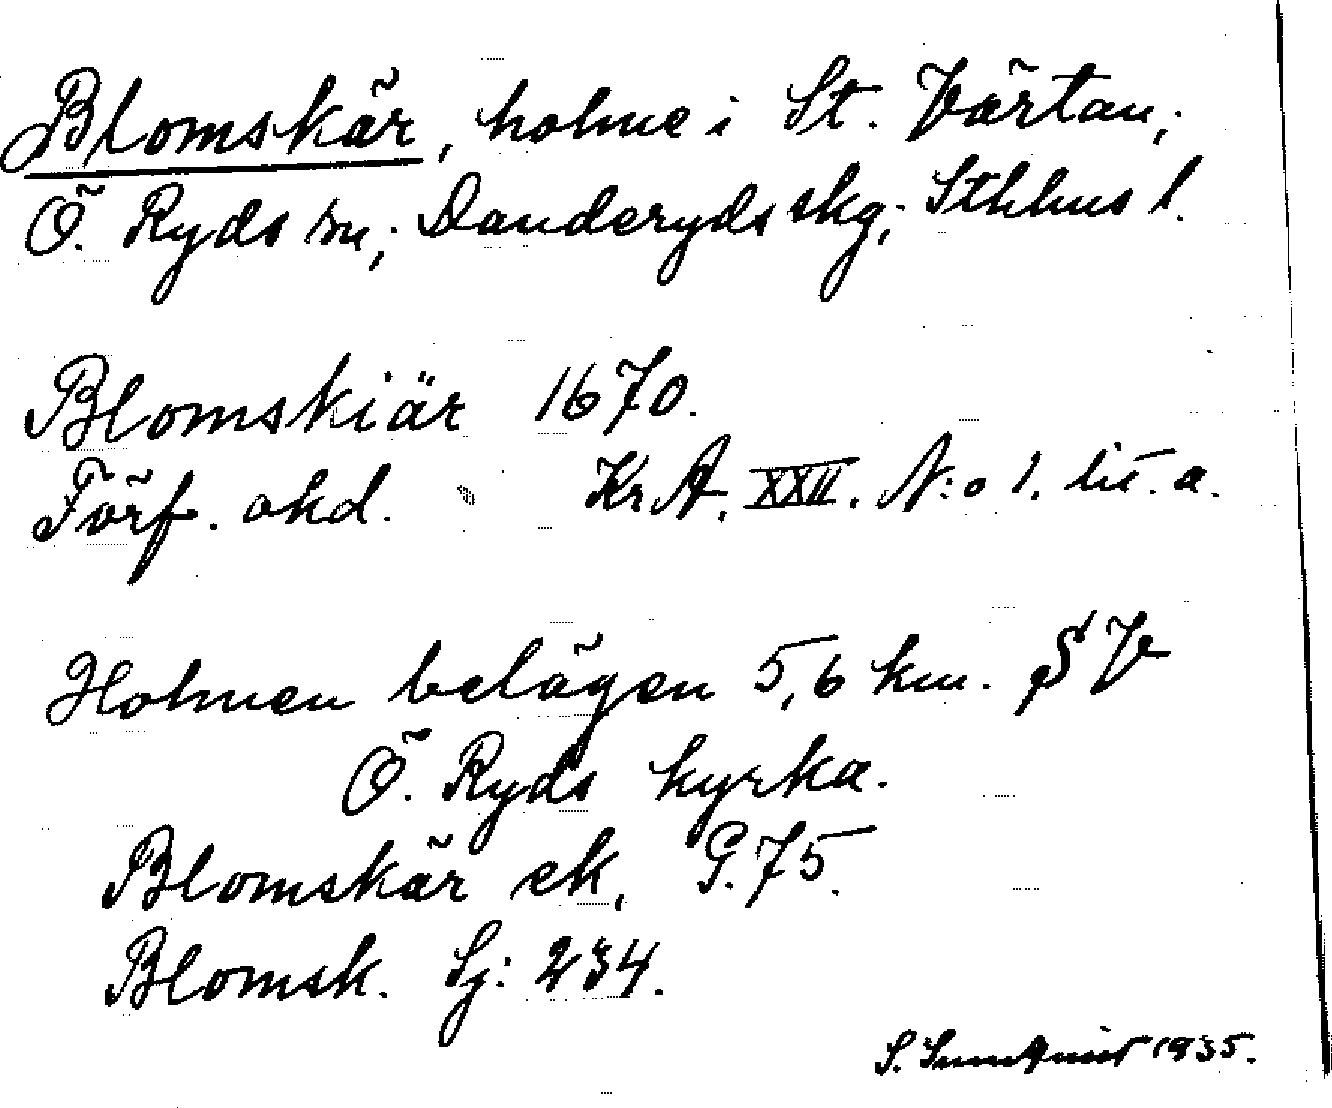 Blomskär, holme i St. Värtan,
Ö. Ryds sn, Danderyds skg, Sthlms l.
Blomskiär 1670.
Förf. okd. Kr A. XXII. N:o 1. lit. a.
Holmen belägen 5,6 km. SV
Ö. Ryds kyrka.
Blomskär ek. G. 75.
Blomsk. Sj: 234.
S. Sundquist 1935.